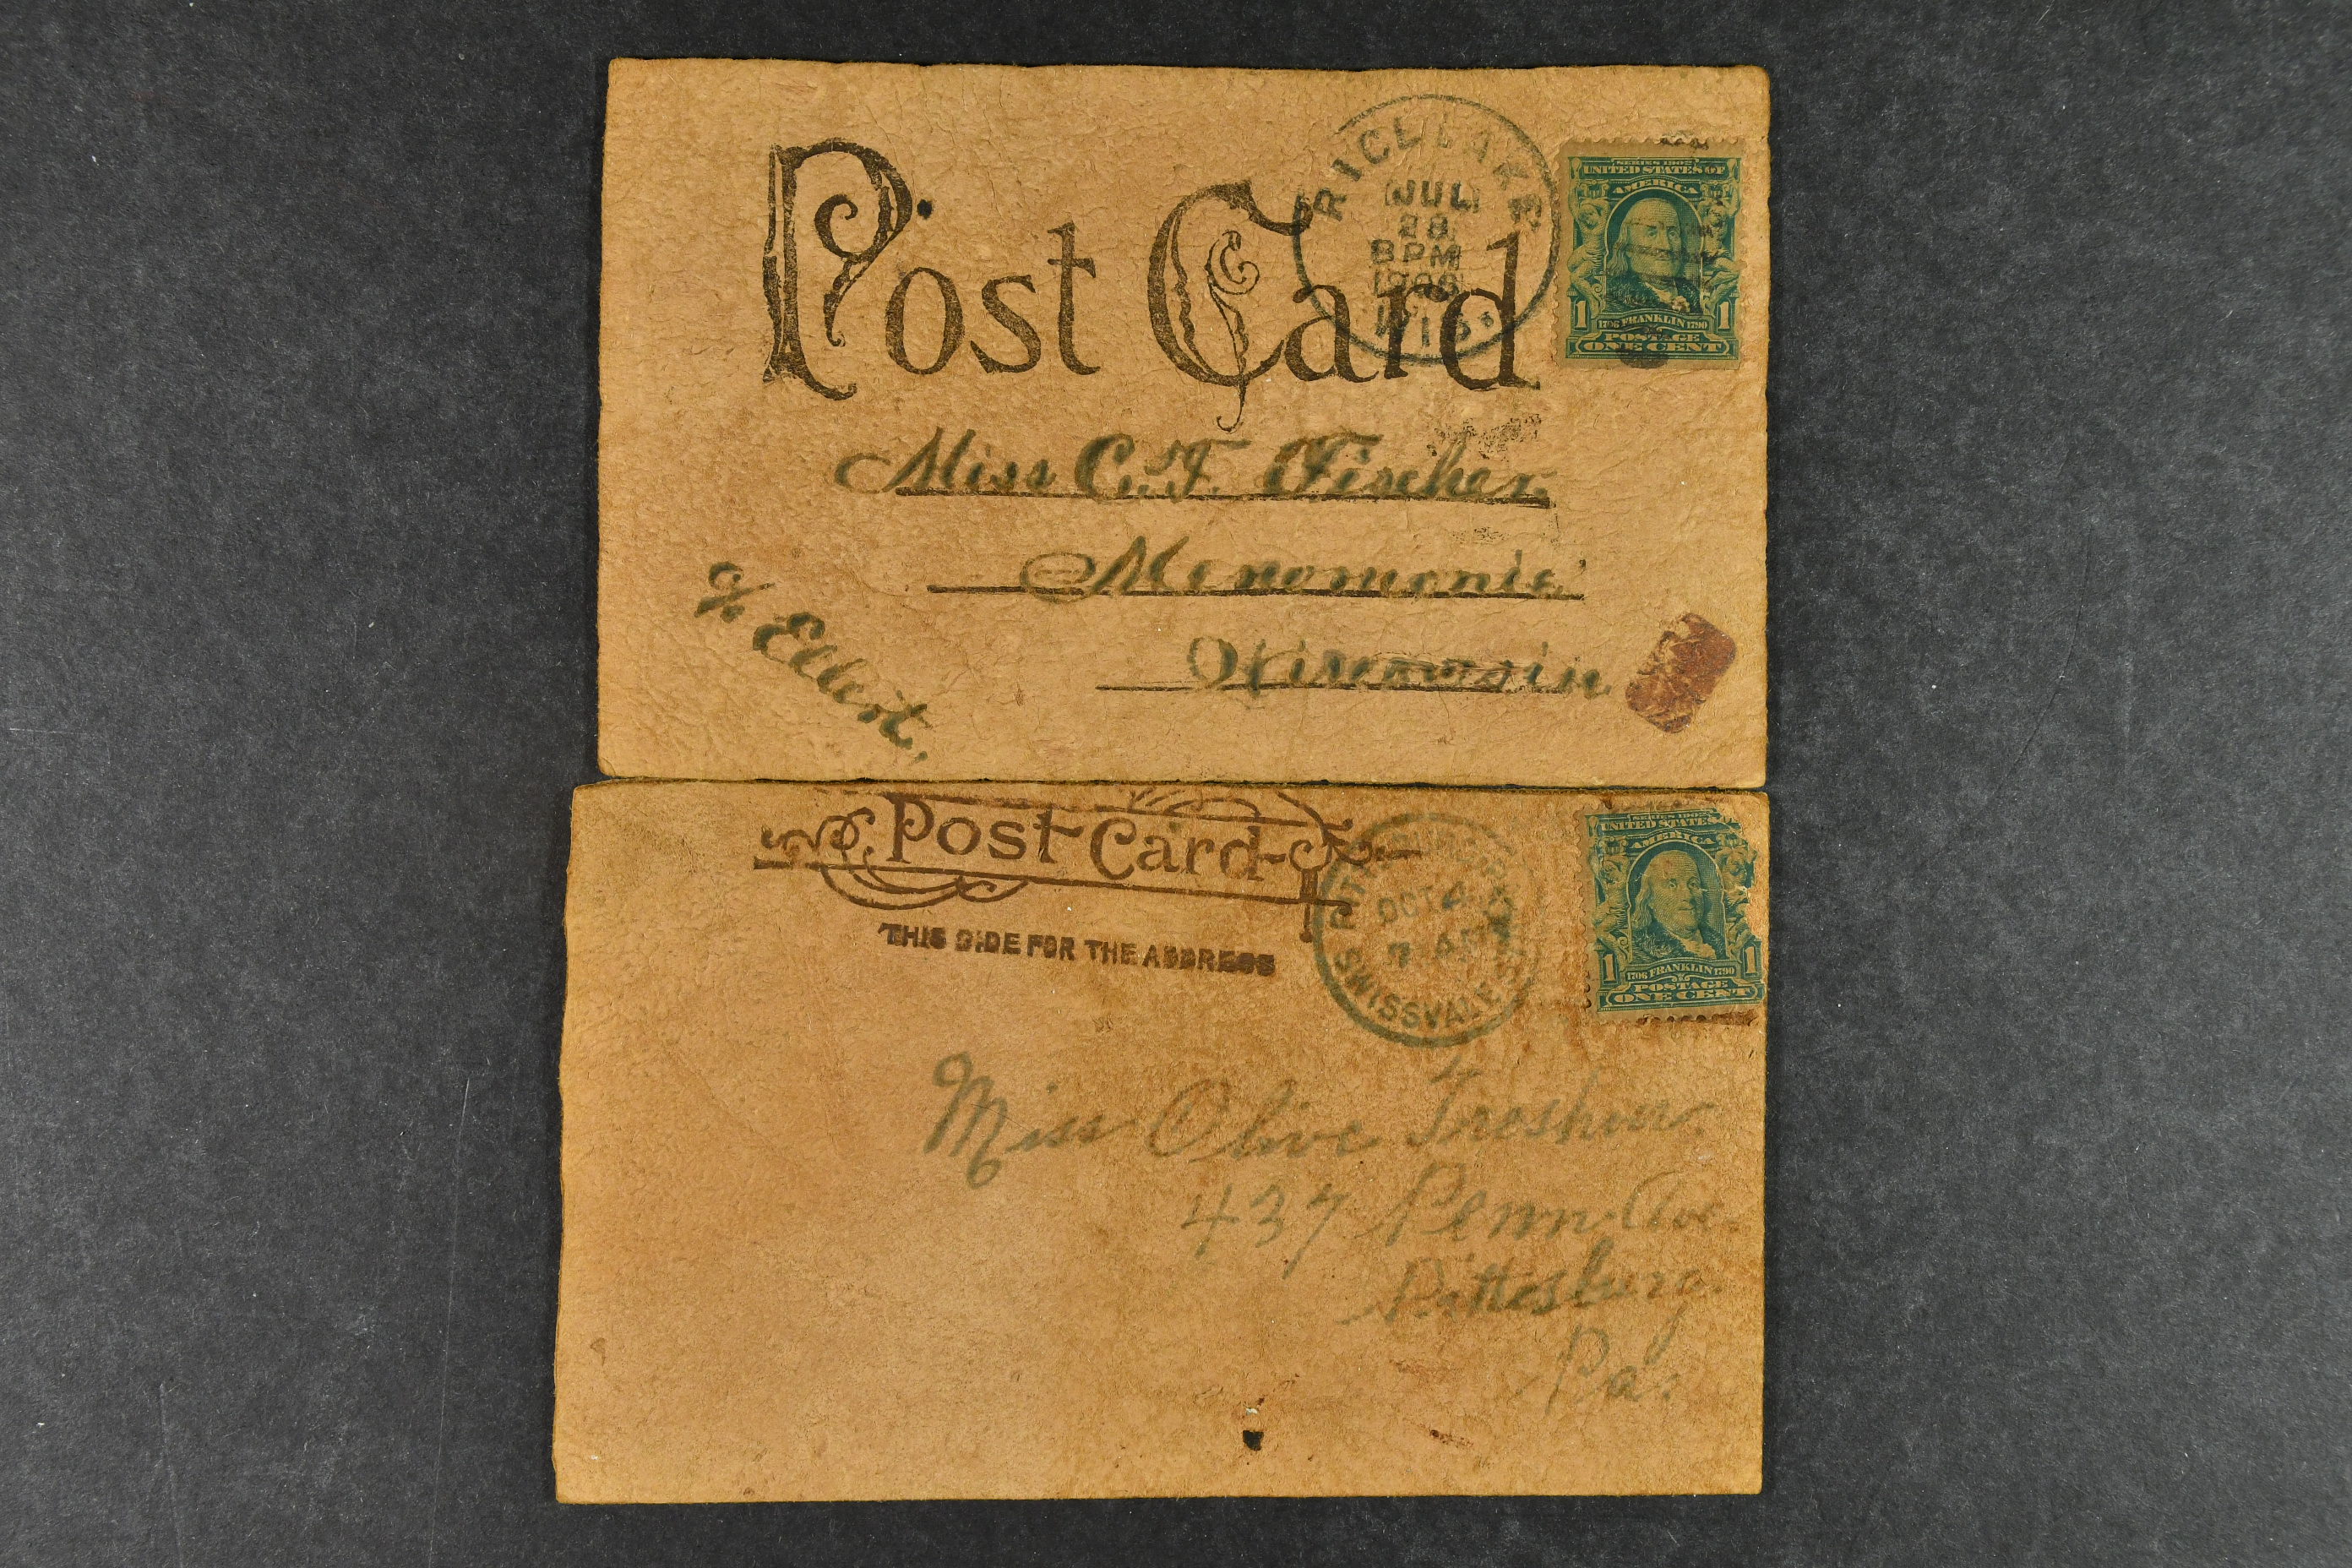 Post Card
RICE LAKE
JUL
28
8 PM
1906
WIS.
SERIES 1902
UNITED STATES OF
AMERICA
1 1706 FRANKLIN 1790 1
POSTAGE
ONE CENT
Miss C. F. Fischer.
Menomonie
Wisconsin.
c/o Elbert.
Post Card
THIS SIDE FOR THE ADDRESS
OCT 4
7 AM
SWISSVALE
SERIES 1902
UNITED STATES OF
AMERICA
1 1706 FRANKLIN 1790 1
POSTAGE
ONE CENT
Miss Olive
437 Penn. Ave.
Pittsburg.
Pa.